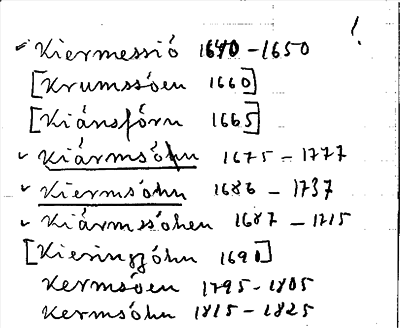 !
Kiermessió 1640-1650
[Krumssóen 1660]
[Kiánsfórn 1665]
✓ Kiármsóhn 1675 - 1777
✓ Kiermsóhn 1686 - 1737
✓ Kiármssóhen 1687 - 1715
[Kieringjóhn 1690]
Kermsóen 1795-1805
Kermsóhn 1815-1825